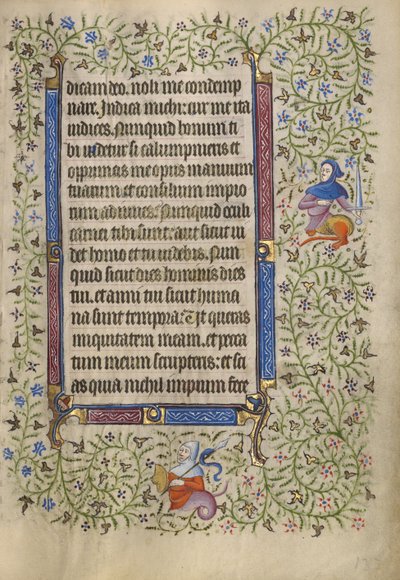 dicam deo. noli me condemp
nare. Indica michi: cur me ita
iudices. Nunquid bonum ti
bi uidetur si calumpnieris et
opprimas me opus manuum
tuarum et consilium impio
rum adiuues. Nunquid oculi
carnei tibi sunt: aut sicut ui
det homo et tu uidebis. Nun
quid sicut dies hominis dies
tui. et anni tui sicut huma
na sunt tempora: Et queras
iniquitatem meam. et pecca
tum meum scrupteris: et sci
as quia nichil impium fece